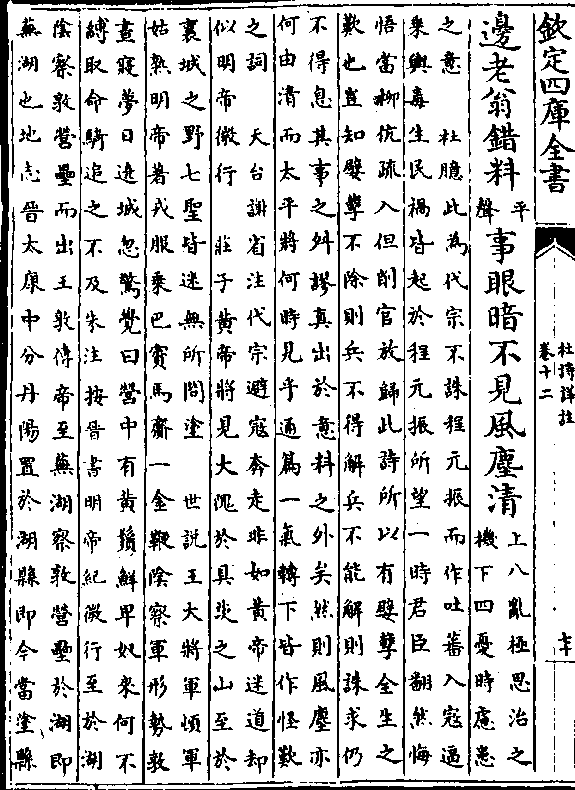 欽定四庫全書
杜詩詳註
卷十二
邊老翁錯料平聲事眼暗不見風塵清上八亂極思治之機下四憂時慮患
之意　杜臆此為代宗不誅程元振而作吐蕃入寇逼
乗輿毒生民禍皆起於程元振所望一時君臣翻然悔
悟當柳伉疏入但削官放歸此詩所以有嬖孽全生之
歎也豈知嬖孽不除則兵不得解兵不能解則誅求仍
不得息其事之舛謬真出於意料之外矣然則風塵亦
何由清而太平將何時見乎通篇一氣轉下皆作怪歎
之詞　天台謝省注代宗避寇奔走非如黄帝迷道却
似明帝微行　莊子黄帝將見大隗於具茨之山至於
襄城之野七聖皆迷無所問塗　世說王大將軍頓軍
姑孰明帝著戎服乗巴賨馬齎一金鞭陰察軍形勢敦
晝寢夢日遶城忽驚覺曰營中有黄鬚鮮卑奴來何不
縛取命騎追之不及朱注按晉書明帝紀微行至於湖
陰察敦營壘而出王敦傳帝至蕪湖察敦營壘於湖即
蕪湖也地志晉太康中分丹陽置於湖縣即今當塗縣